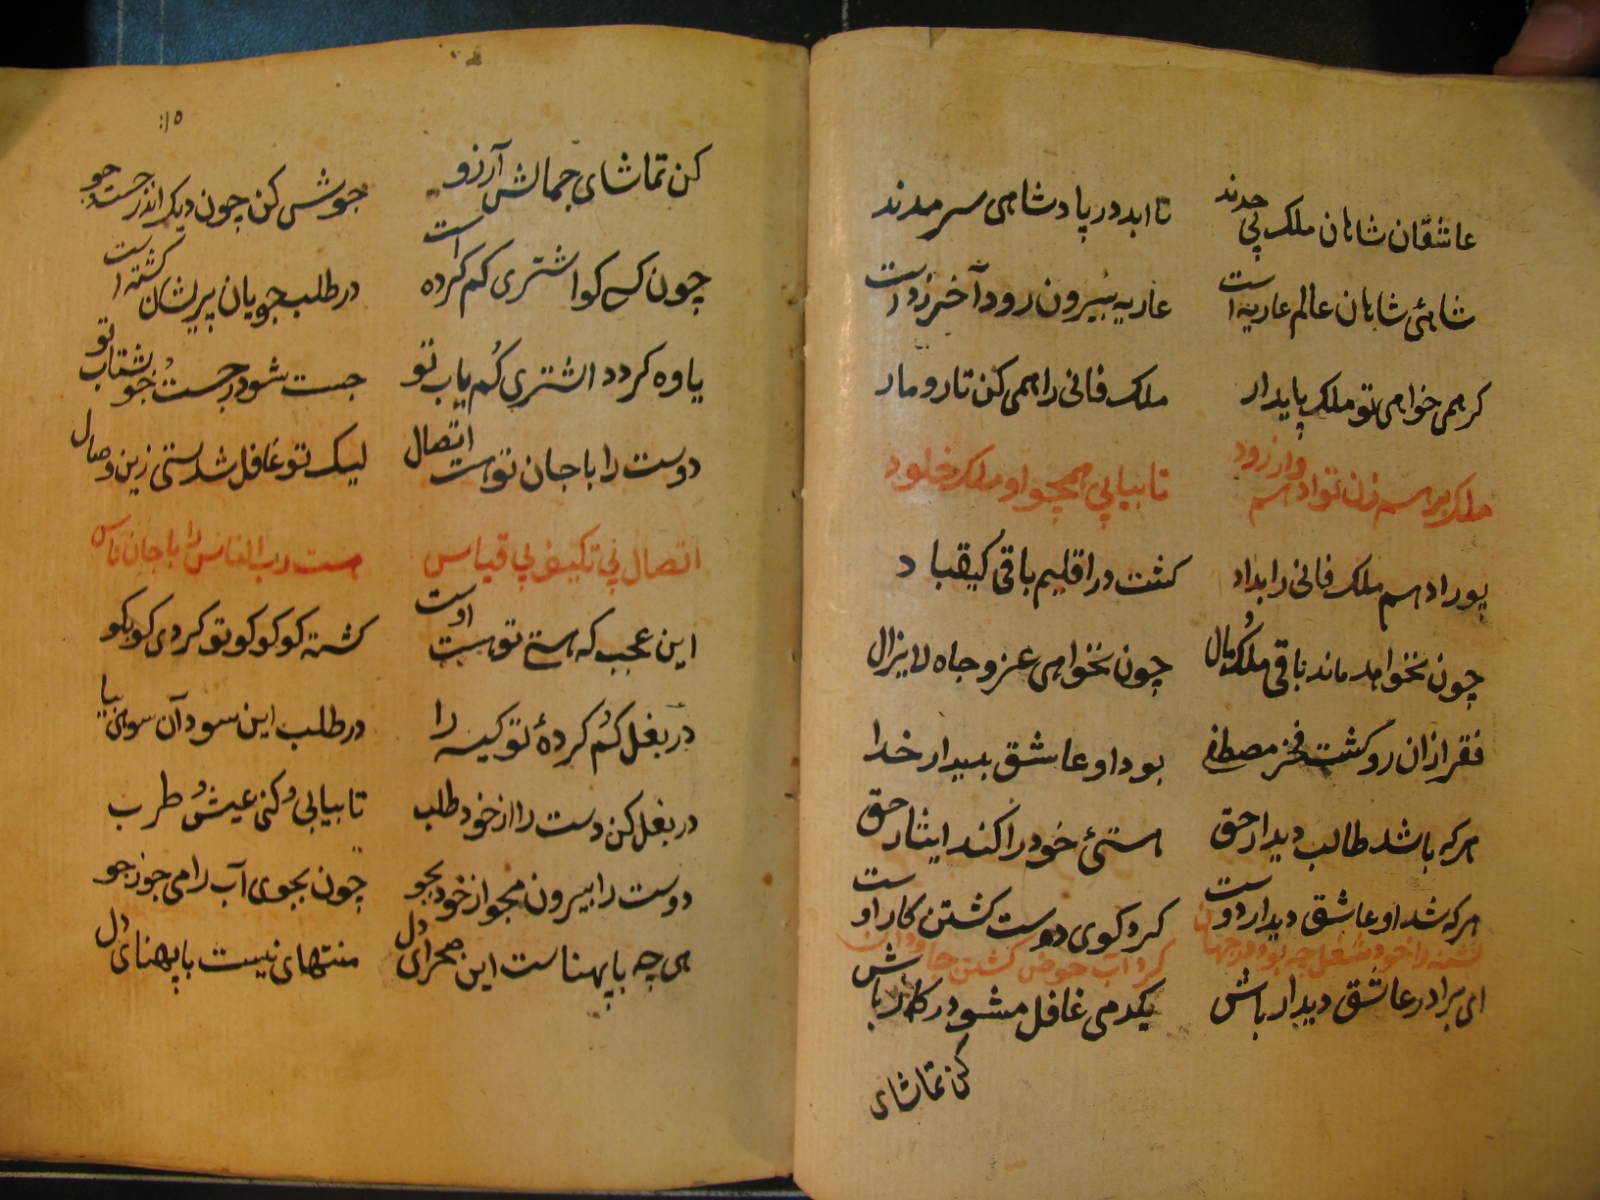 عاشقان شاهان ملک بی حدند تا ابد در پادشاهی سرمدند
شاهئ شاهان عالم عاریه است عاریه بیرون رود آخر ز دست
کر همی خواهی تو ملک پایدار ملک فانی را همی کن تار و مار
ملک برهم زن تو ادهم وار زود تا بیابی همچو او ملک خلود
پور ادهم ملک فانی را بداد کشت در اقلیم باقی کیقباد
چون نخواهد ماند باقی ملک و مال چون نخواهی عز و جاه لایزال
فقر ازان رو کشت فخر مصطفی بود او عاشق بدیدار خدا
هرکه باشد طالب دیدار حق هستئ خود را کند ایثار حق
هرکه شد او عاشق دیدار دوست کرد کوی دوست کشتن کار او ست
تشنه را خود شغل چه بود در جهان کرد آب حوض کشتن جاودان
ای برادر عاشق دیدار باش یکدمی غافل مشو در کار باش
کن تماشای
۱۵
کن تماشای جمالش آرزو جوش کن چون دیک اندر جست و جو
چون کسی کو اشتری کم کرده است در طلب جویان پریشان کشته است
یاوه کردد اشتری کم یاب تو جست شود در جست و جو بشتاب تو
دوست را با جان تو هست اتصال لیک تو غافل شدستی زین وصال
اتصال بی تکیف بی قیاس هست رب الناس را با جان ناس
این عجب که هستی تو هست اوست کشته کو کو کو کو تو کردی کو بکو
در بغل کم کردهٔ تو کیسه را در طلب این سود آن سوئی بیا
در بغل کن دست را از خود طلب تا بیابی و کنی عیش و طرب
دوست را بیرون مجو از خود بجو چون بجوی آب را می جو ز جو
هی چه با پهناست این صحرای دل منتهای نیست با پهنای دل